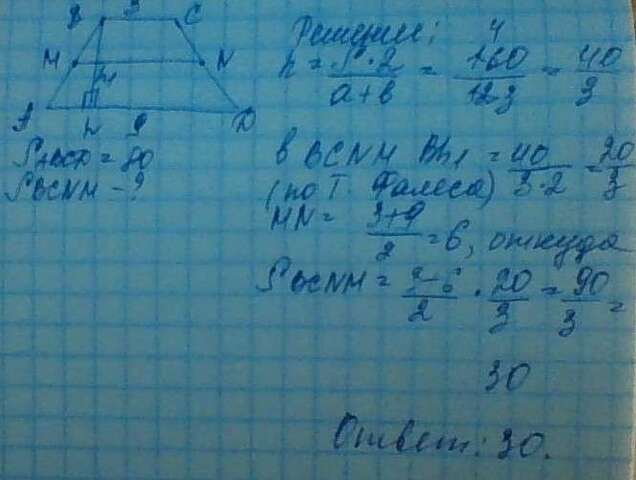 B 3 C
M N
h₁
A h 9 D
S ABCD = 80
S BCNM - ?
Решение:
h = S·2 / a+b = 160 / 12 = 40 / 3
в BCNM Bh₁ = 40 / 3·2 = 20 / 3
(по Т. Фалеса)
MN = 3+9 / 2 = 6, откуда
S BCNM = 3+6 / 2 · 20 / 3 = 90 / 3 =
30
Ответ: 30.